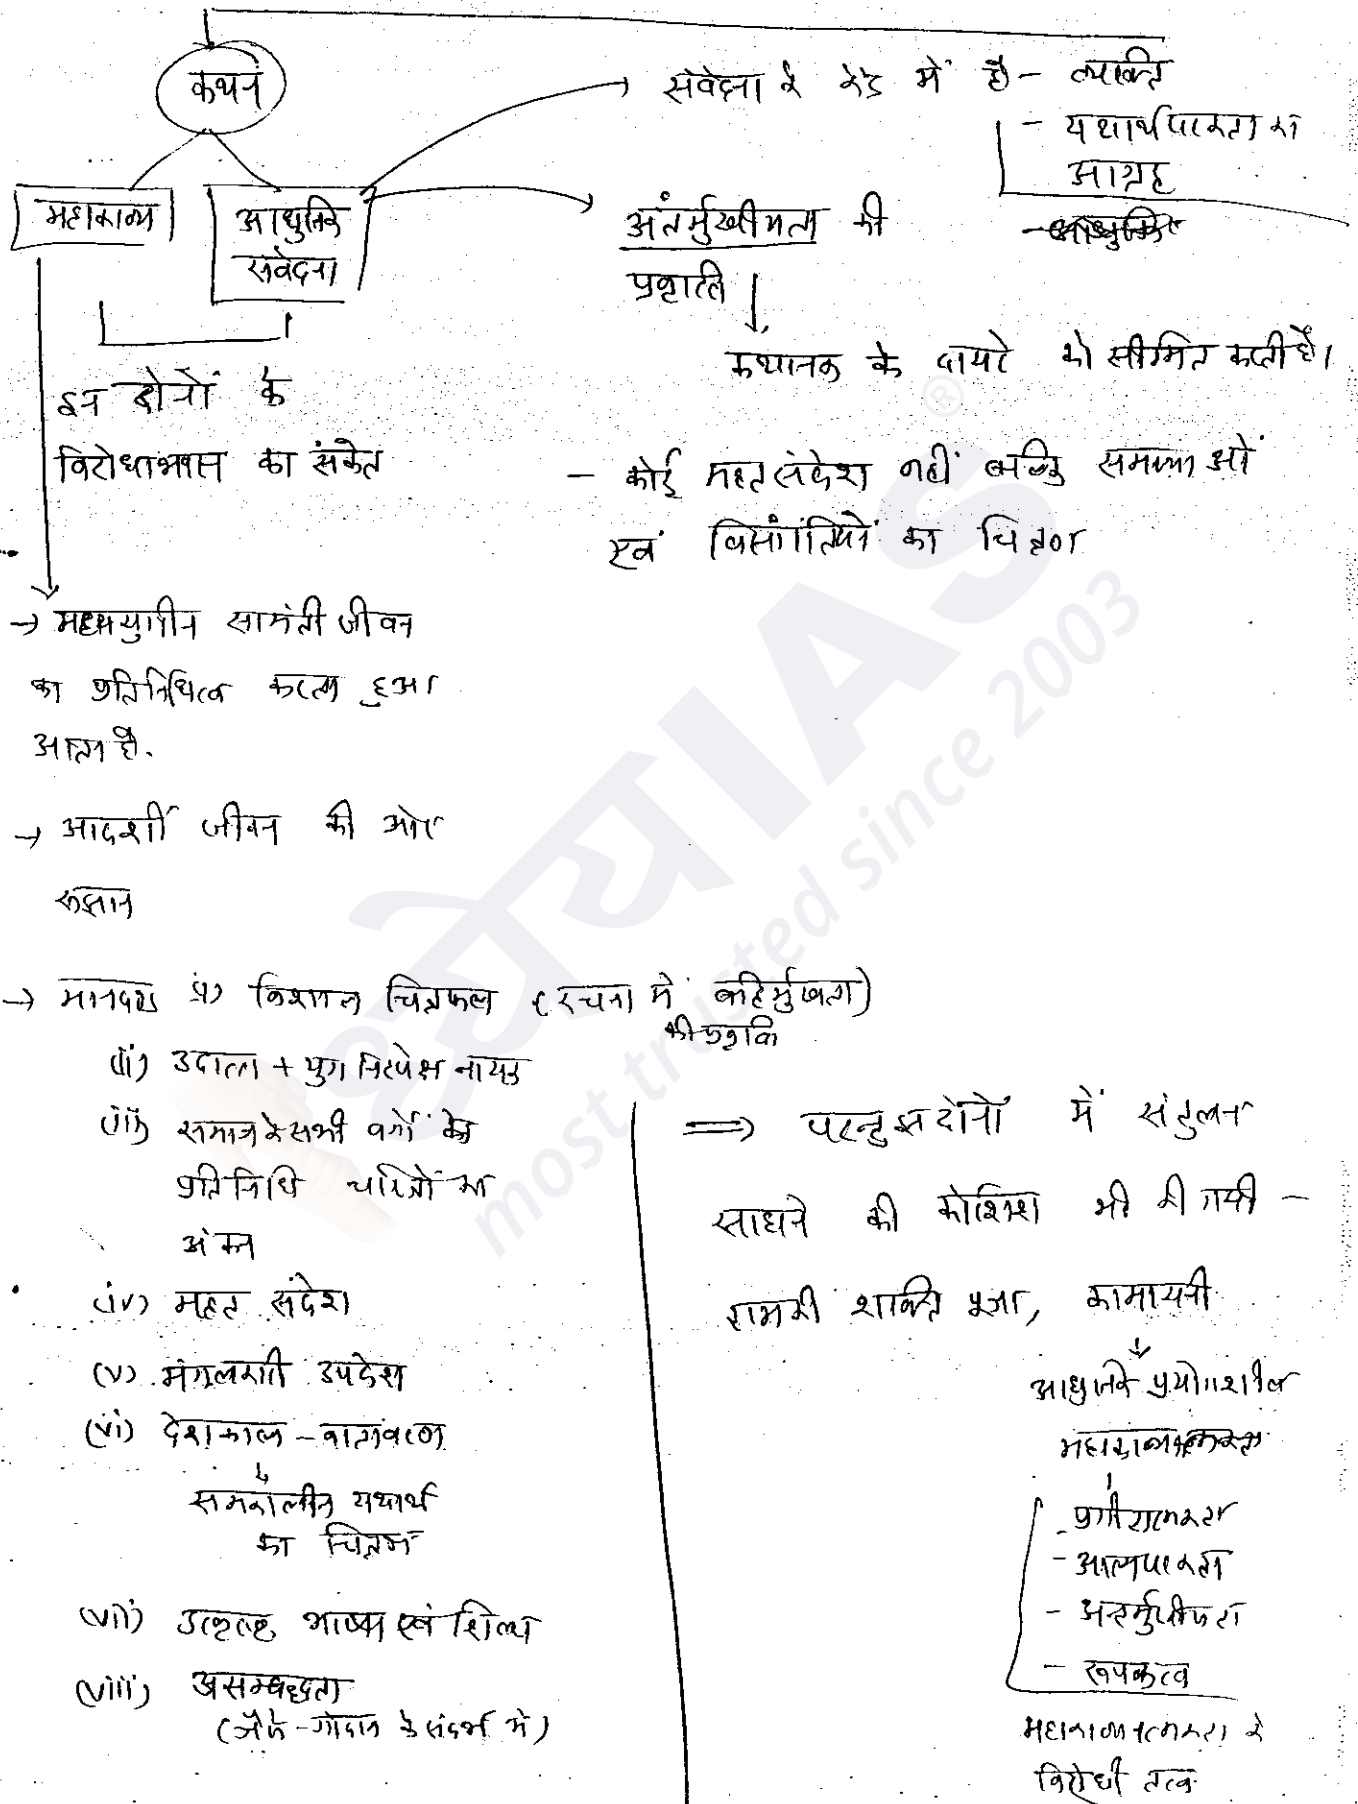 कथन
महाकाव्य
आधुनिक
संवेदना
इन दोनों के
विरोधाभास का संकेत
→ संवेदना के केंद्र में है - व्यक्ति
- यथार्थपरकता का
आग्रह
अंतर्मुखीयता की
प्रवृत्ति
कथानक के दायरे को सीमित करती है।
- कोई महत संदेश नहीं बल्कि समस्याओं
एवं विसंगतियों का चित्रण
→ मध्ययुगीन सामंती जीवन
का प्रतिनिधित्व करता हुआ
आता है.
→ आदर्श जीवन की ओर
रूझान
→ मानदण्ड (i) विशाल चित्रफल (रचना में बहिर्मुखता)
की प्रवृत्ति
(ii) उदात्त + युग निरपेक्ष नायक
(iii) समाज के सभी वर्गों के
प्रतिनिधि चरित्रों का
अंकन
(iv) महत संदेश
(v) मंगलकारी उपदेश
(vi) देशकाल - वातावरण
समकालीन यथार्थ
का चित्रण
(vii) उत्कृष्ट भाषा एवं शिल्प
(viii) असम्बद्धता
(जैसे - गोदान के संदर्भ में)
⇒ परन्तु इन दोनों में संतुलन
साधने की कोशिश भी की गयी -
राम की शक्ति पूजा, कामायनी
आधुनिक प्रयोगशील
महाकाव्यात्मकता
- प्रगीतात्मकता
- आत्मपरकता
- अन्तर्मुखीयता
- रूपकत्व
महाकाव्यात्मकता के
विरोधी तत्व
ध्येय IAS ®
most trusted since 2003